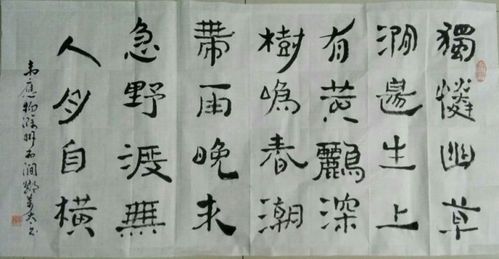 獨憐幽草
澗邊生上
有黃鸝深
樹鳴春潮
帶雨晚来
急野渡無
人舟自橫
韋應物滁州西澗